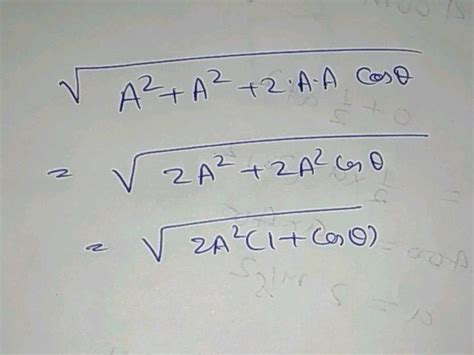 √A²+A²+2·A·A Cosθ
= √2A²+2A² Cosθ
= √2A²(1+Cosθ)